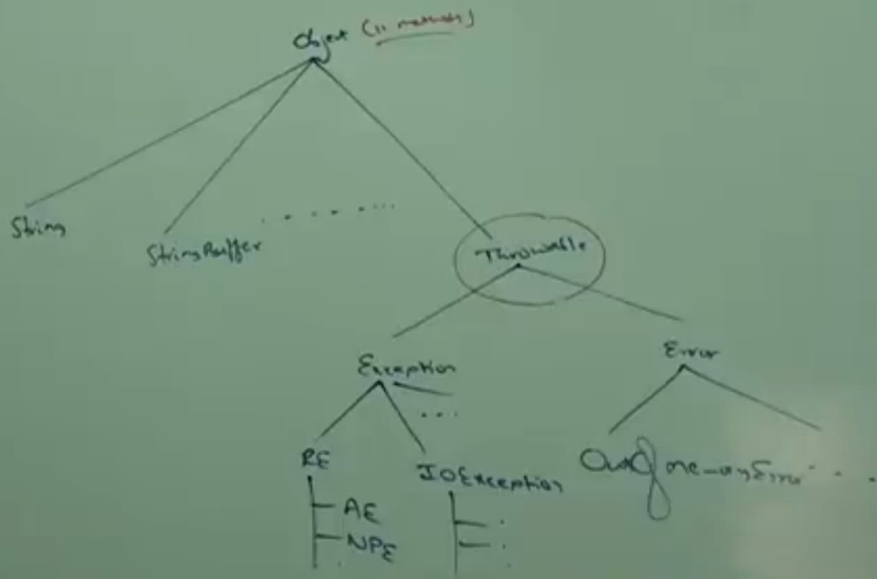 Object (11 methods)
String
StringBuffer
Throwable
Exception
Error
RE
IOException
OutOfMemoryError
AE
NPE